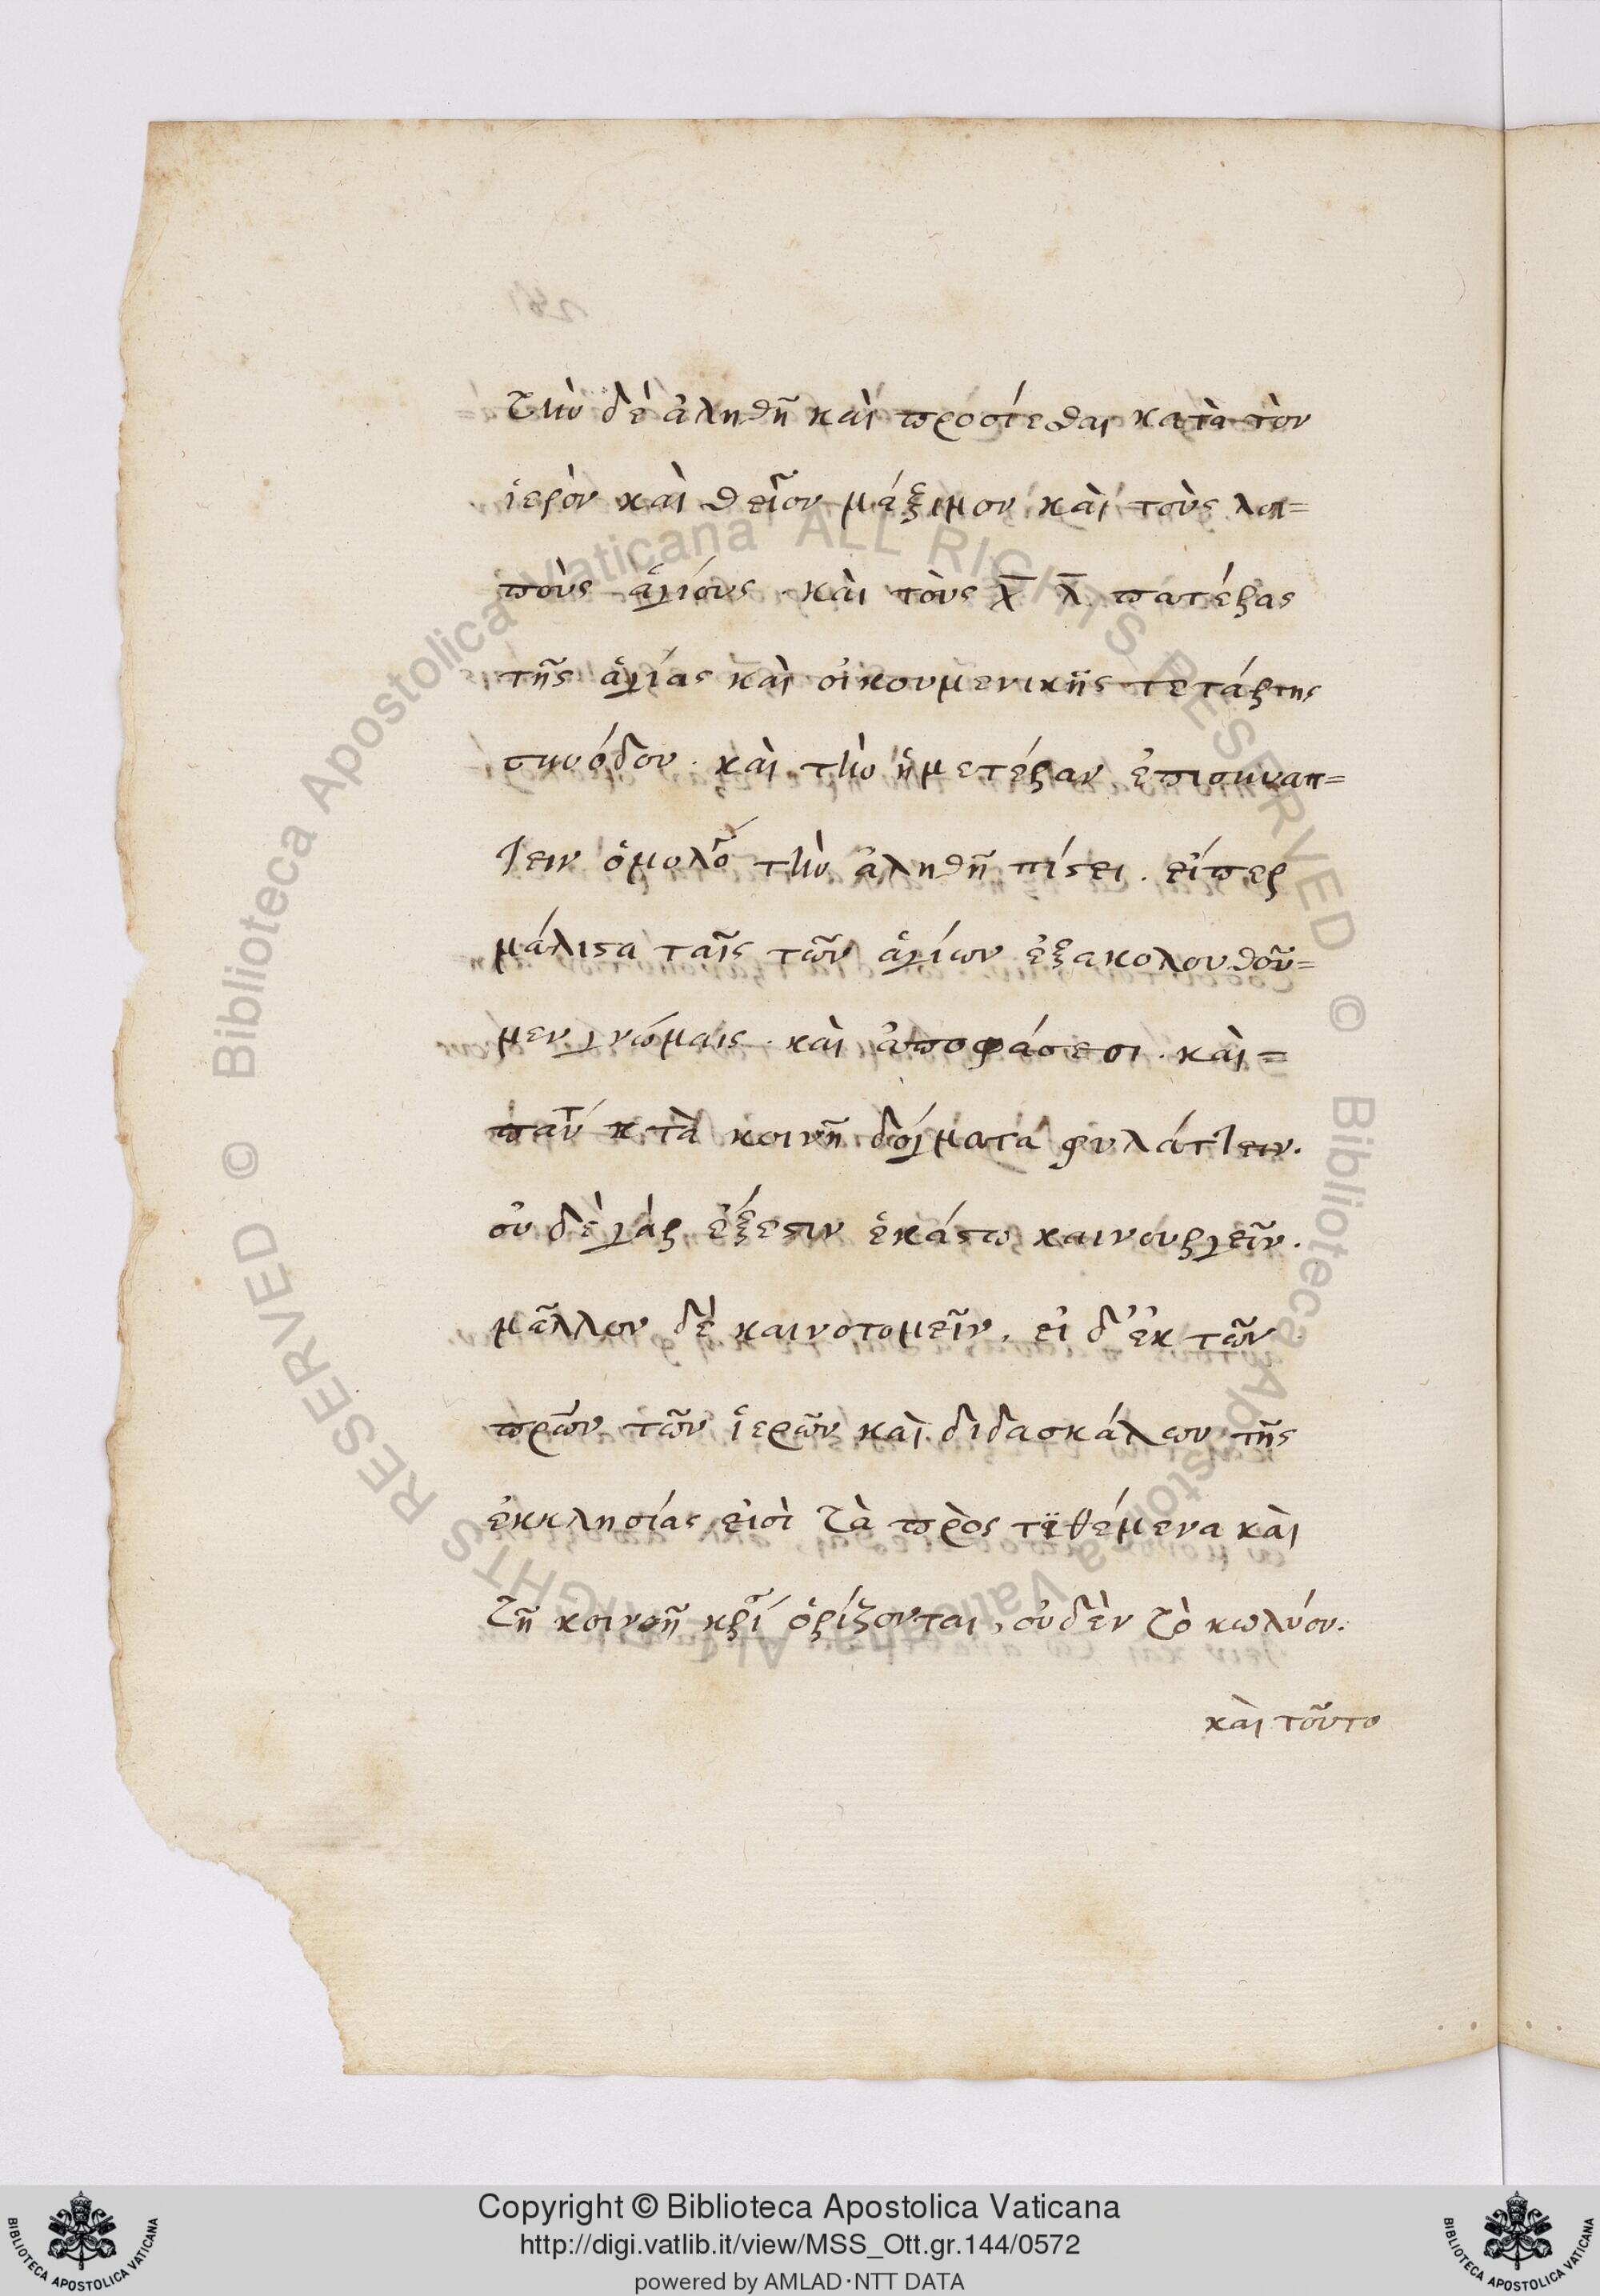 τὴν δὲ ἀληθῆ καὶ προσίεσθαι κατὰ τὸν
ἱερὸν καὶ θεῖον μάξιμον καὶ τοὺς λοι=
ποὺς ἁγίους. καὶ τοὺς χ̅ λ̅ πατέρας
τῆς ἁγίας καὶ οἰκουμενικῆς τετάρτης
συνόδου. καὶ τὴν ἡμετέραν ἐπισυναπ=
τειν ὁμολο τὴν ἀληθῆ πίστει. εἴπερ
μάλιστα ταῖς τῶν ἁγίων ἐξακολουθοῦ=
μεν γνώμαις. καὶ ἀποφάσεσι. καὶ=
τὰ κοινῆ δόγματα φυλάττειν.
οὐδὲ γὰρ ἔξεστιν ἑκάστω καινουργεῖν.
μᾶλλον δὲ καινοτομεῖν, εἰ δ' ἐκ τῶν
πρων τῶν ἱερῶν καὶ διδασκάλων τῆς
ἐκκλησίας εἰσὶ τὰ πρὸς τϊθέμενα καὶ
τῆ κοινῆ ὁρίζονται, οὐδὲν τὸ κωλύον.
καὶ τοῦτο
Biblioteca Apostolica Vaticana ALL RIGHTS RESERVED © Biblioteca Apostolica Vaticana ALL RIGHTS RESERVED ©
Copyright © Biblioteca Apostolica Vaticana
http://digi.vatlib.it/view/MSS_Ott.gr.144/0572
powered by AMLAD·NTT DATA
BIBLIOTECA APOSTOLICA VATICANA
BIBLIOTECA APOSTOLICA VATICANA